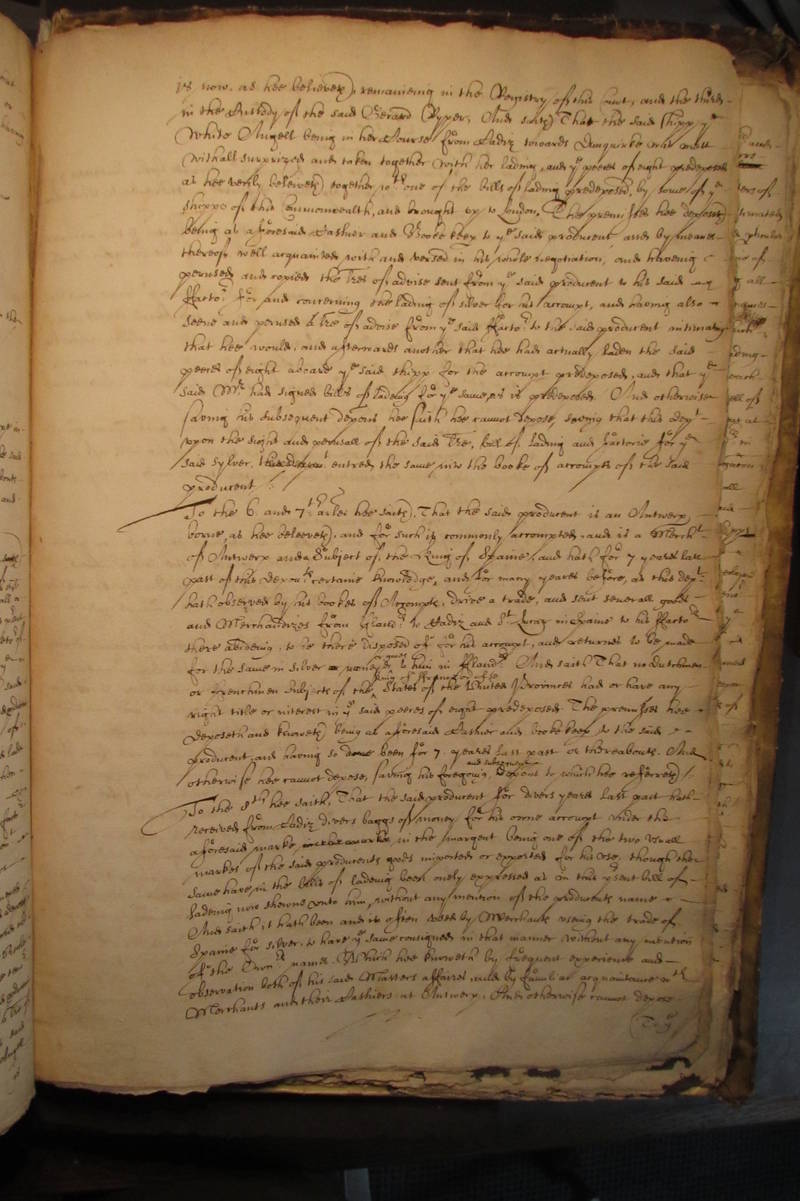 is now, as hee beleiveth, remaineing in the Registry of this Court, and the third
in the Custody of the said Gerard Ryper, And saith That the said shipp ye
White Angell being in her Course from Cadiz towards Dunquirke was
withall surprized and taken together with her lading, and ye peeces of eight predeposed
as hee verily beleiveth together wth one of the bills of lading predeposed, by some of ye
shipps of this Commonwealth, and brought up to London, The premisses hee deposeth
being as aforesaid Cashier and Booke keeper to ye said producent and by meanes
thereof well acquainted with and versed in his whole negotiation, and haveing
perused and copied the lres of advise sent from ye said producent to his said
ffactor for and concerning the lading of silver for his accompt, and having also
seene and perused a lre of advise from ye said ffactor to the said producent intimating
that hee would, and afterwards another that hee had actually laden the said
peeces of eight aboard ye said shipp for the accompt predeposed, and that ye
said Mr had signed bills of lading for ye same, as is predeposed. And otherwise
saving his subsequent deposition hee saith hee cannot depose, saving that this dept
upon the sight and perusall of the said lre, bill of lading and factorie for ye
said sylver, entred the same into the booke of accompts of the said
producent
To the 6 and 7th arles hee saith, That the said producent is an Antwerp
borne, as hee beleeveth, and for such is commonly accompted, and is a Mercht
of Antwerp and a Subject of the King of Spaine, and hath for 7 yeares last
past of this deponts certaine knowledge, and for many yeares before, as this dept
hath observed by his bookes of Accompts, drive a trade, and sent severall goods
and Merchandizes from ffland to Cadiz and St Lucar in Spaine to his ffactor
there abideing, to be there disposed of for his accompt, and returnes to be made
for the same in silver or moneyes to him in ffland And saith That no Dutchmen
or frenchmen Subjects of the States of the United Provinces had or have any
right title or interest in ye said peeces of eight predeposed The premisses hee
deposeth and knoweth being as aforesaid Cashier and booke keep to the said
producent, and having so been for 7 yeares last past or thereabouts. And
and subsequent
otherwise hee cannot depose, saving his foregoing depont to which hee referreth
To the 8th hee saith, That the said producent for divers yeares last past hath
received from Cadiz divers baggs of money for his owne accompt under the
aforesaid marke in the margent being one of the two usuall
markes of the said producents goods imported or exported for his use, though the
same have in the bills of ladeing been onely expressed as in this present bill of
ladeing now showne unto him, without any mention of the producents name
And saith it hath been and is often used by Merchants using the trade of
Spaine for silver, to have ye same consigned in that manner without any mention
of the Owners names. Which hee knoweth by frequent experience and
observation both of his said Masters affaires, and by familiar acquaintance wth
Merchants and their Cashiers at Antwerp, And otherwise cannot depose